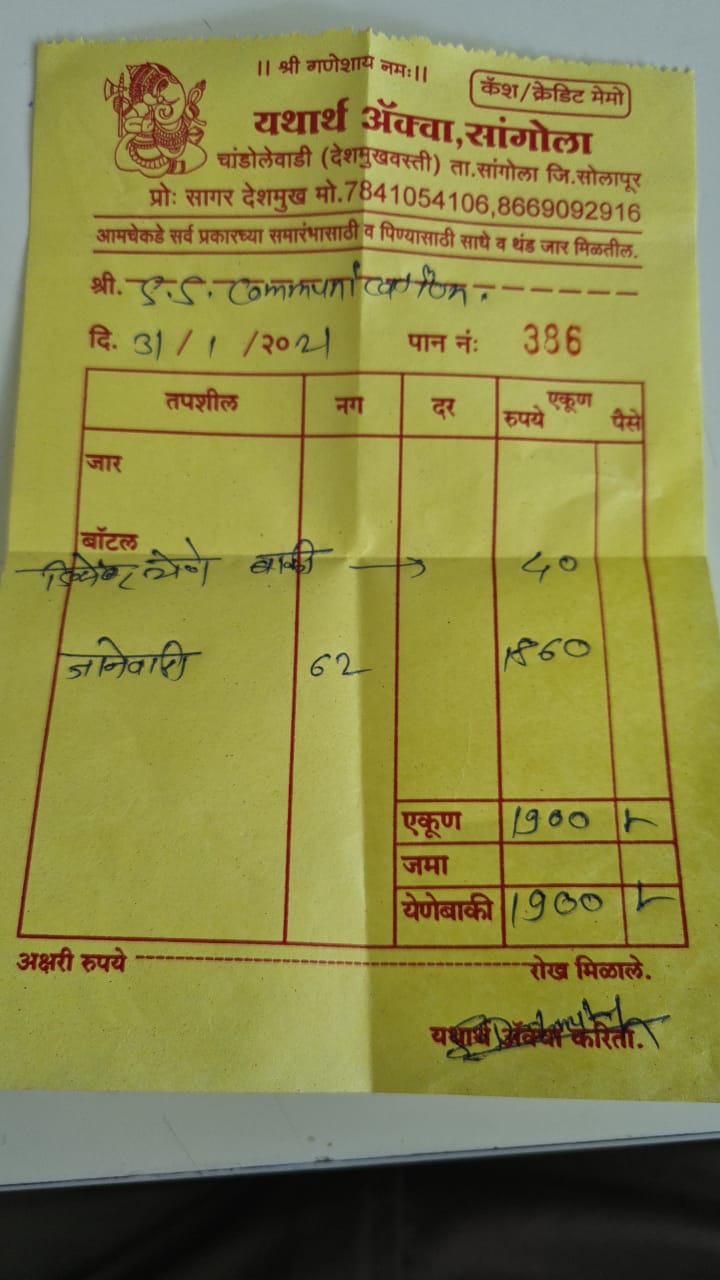 || श्री गणेशाय नमः||
कॅश/क्रेडिट मेमो
यथार्थ ॲक्वा,सांगोला
चांडोलेवाडी (देशमुखवस्ती) ता.सांगोला जि.सोलापूर
प्रोः सागर देशमुख मो.7841054106,8669092916
आमचेकडे सर्व प्रकारच्या समारंभासाठी व पिण्यासाठी साधे व थंड जार मिळतील.
श्री. S.S. Communication.
दि. 31/1/२०21 पान नंः 386
तपशील नग दर एकूण रुपये पैसे
जार
बॉटल
डिसेंबर येणे बाकी → 40
जानेवारी 62 1860
एकूण 1900
जमा
येणेबाकी 1900
अक्षरी रुपये रोख मिळाले.
यथार्थ ॲक्वा करिता.